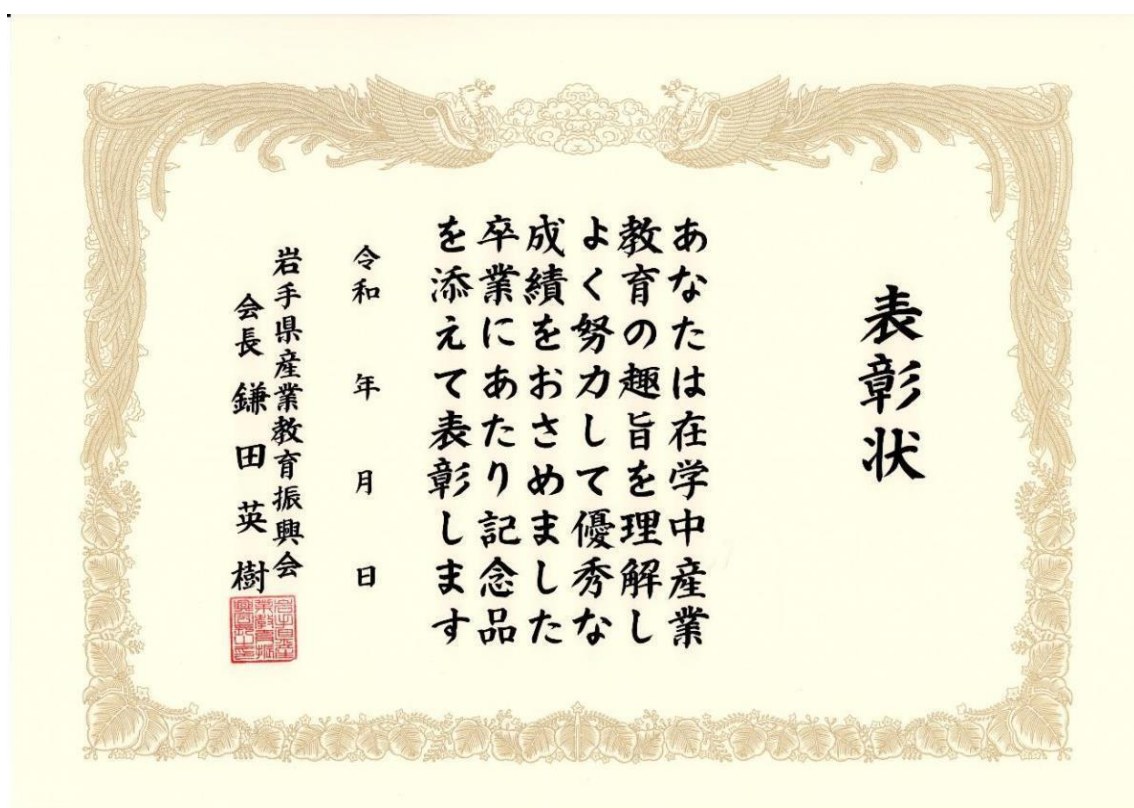 表彰状
あなたは在学中産業
教育の趣旨を理解し
よく努力して優秀な
成績をおさめました
卒業にあたり記念品
を添えて表彰します
令和 年 月 日
岩手県産業教育振興会
会長 鎌田英樹